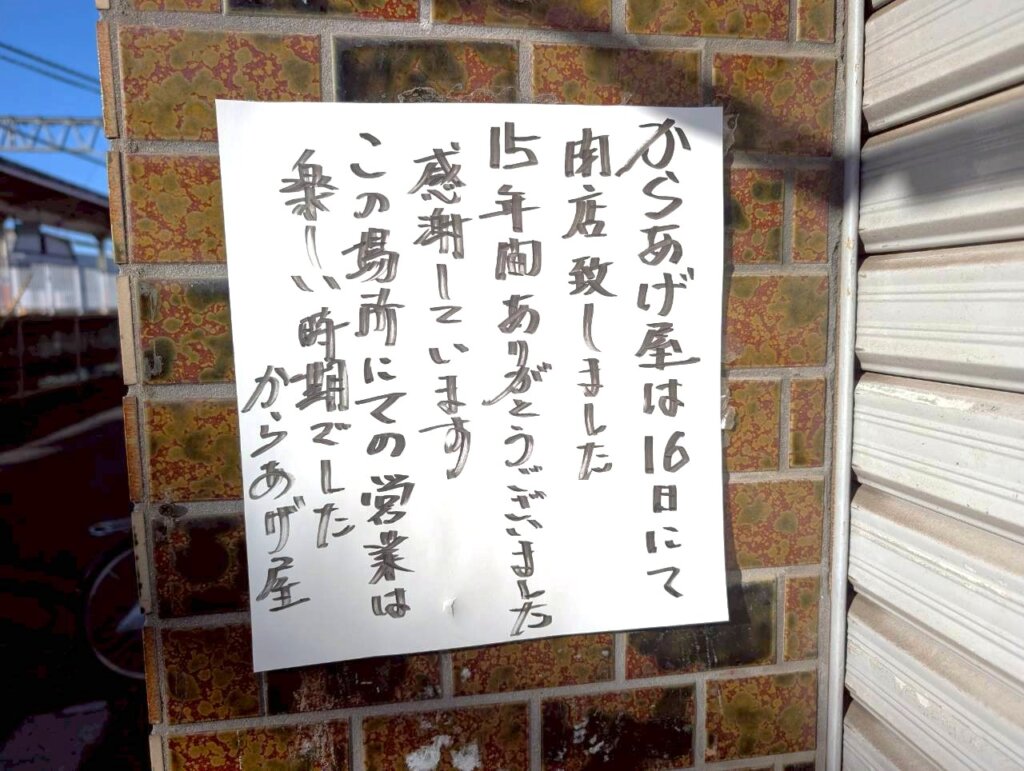 からあげ屋は16日にて
閉店致しました
15年間ありがとうございました
感謝しています
この場所にての営業は
楽しい時期でした
からあげ屋